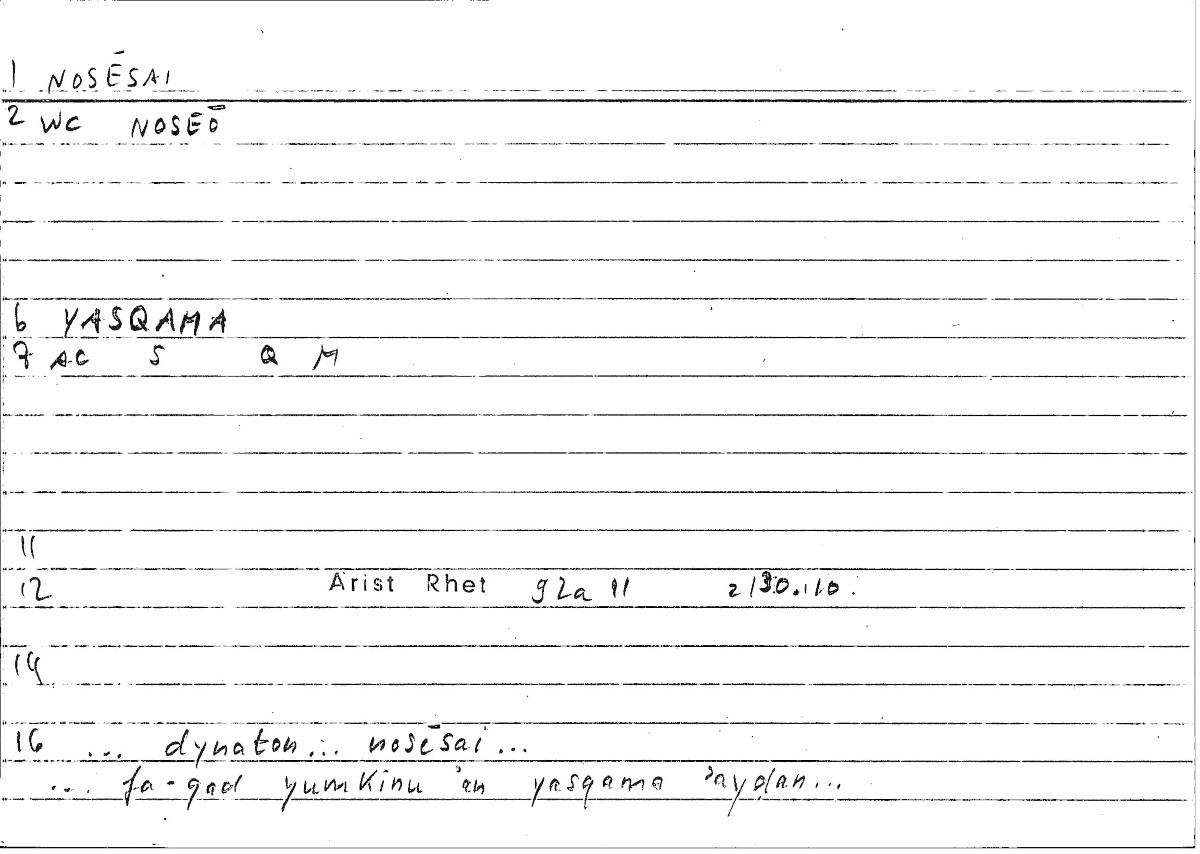 1 NOSĒSAI
2 WC NOSEŌ
6 YASQAMA
7 AC S Q M
11
12 Arist Rhet 92a 11 2/30.10.
14
16 ... dynaton... nosēsai...
... fa-qad yumkinu ʾan yasqama ʾayḍan...